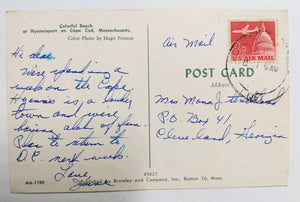 Colorful Beach
at Hyannisport on Cape Cod, Massachusetts.
Color Photo by Hugo Poisson
Hi
Were spending a
week on the Cape
Hyannis is a lovely
town and we're
having alot of fun.
Plan to return to
D.C. next week.
Love,
MA-1190
Published by Bromley and Company, Inc., Boston 16 Mass.
45622
Air Mail
POST CARD
Address
8c
U.S. AIR MAIL
Miss Mona J.
P.O. Box 41
Cleveland, Georgia